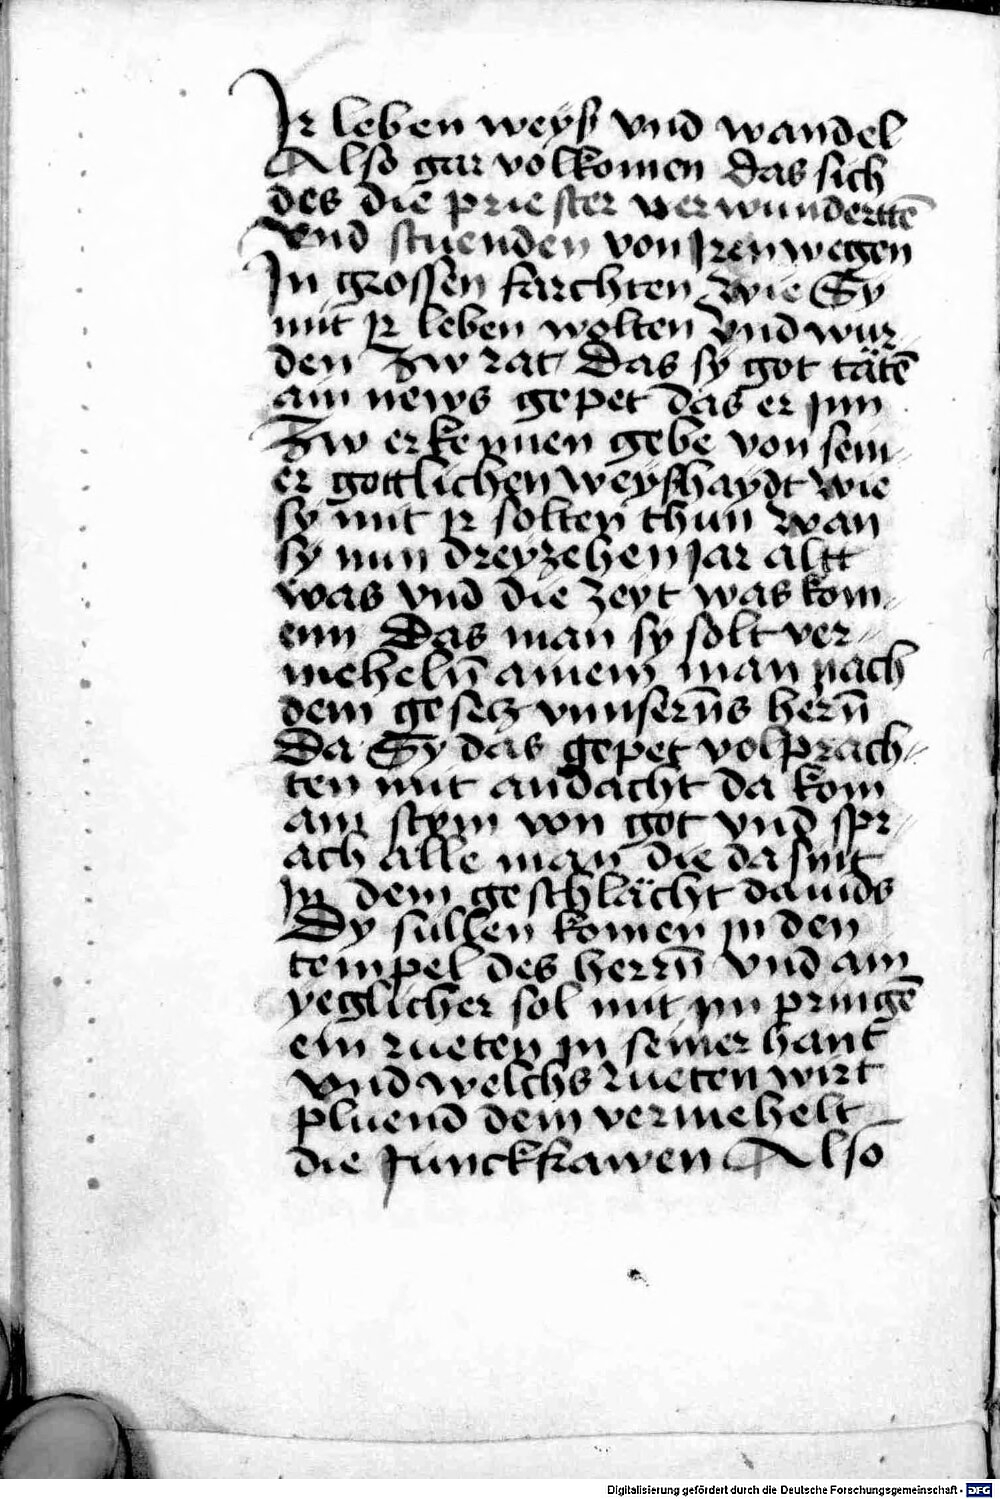 Ir leben weyß vnd wandel
Also gar volkomen das sich
des die priester verwunderttē
Vnd stuenden von Iren wegen
In grossen farchten wie Sy
mit Ir leben wolten Vnd wur„
den Zw rat Das sy got tätē
ain news gepet das er inn
Zw erkennen gebe von sein„
er gottlichen weyßhaydt wie
sy mit Ir solten thun wan
sy nun dreyzehen Jar altt
was vnd die zeyt was kom„
enn Das man sy solt ver„
mehelñ ainem man nach
dem gesetz vnnserñs herñ
Da Sy das gepet volprach„
ten mit andacht da kom
ain stym von got vnd spr„
ach alle man die da sint
In dem geschlächt dauids
Dy sullen komen in den
tempel des herrñ Vnd ain
yeglicher sol mit im pringē
ein rueten in seiner hant
vnd welchs rueten wirt
pluend dem vermehelt
die Junckfrawen Also
Digitalisierung gefördert durch die Deutsche Forschungsgemeinschaft - DFG